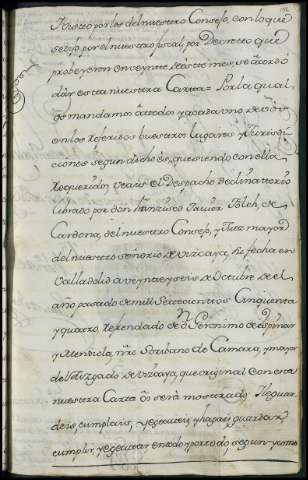 Visto por los del nuestro Consejo, con lo que
se dijo por el nuestro fiscal, por Decreto que
proveyeron en veynte de este mes, se acordó
dar esta nuestra Carta = Por la qual
os mandamos à todos y à cada uno de vós
en los referidos vuestros lugares y Jurisdi
ciones segun dicho es, que siendo con ella
requeridos, veais el Despacho declinatorio
librado por don Francisco Javier Folch, de
Cardona, del nuestro Consejo, y Juez mayor
del nuestro señorio de Vizcaya, su fecha en
Valladolid a veynte y seis de Octubre de el
año pasado de mill Setecientos Cinquenta
y quatro, Refrendado de Dn. Geronimo de
y Mendiola, nro. Scribano de Camara, y mayor
del Juzgado de Vizcaya, que original con esta
nuestra Carta os será mostrado, Y le guar
deis, cumplais, y executeis, y hagais guardar,
cumplir, y executar en todo y por todo, segun y como